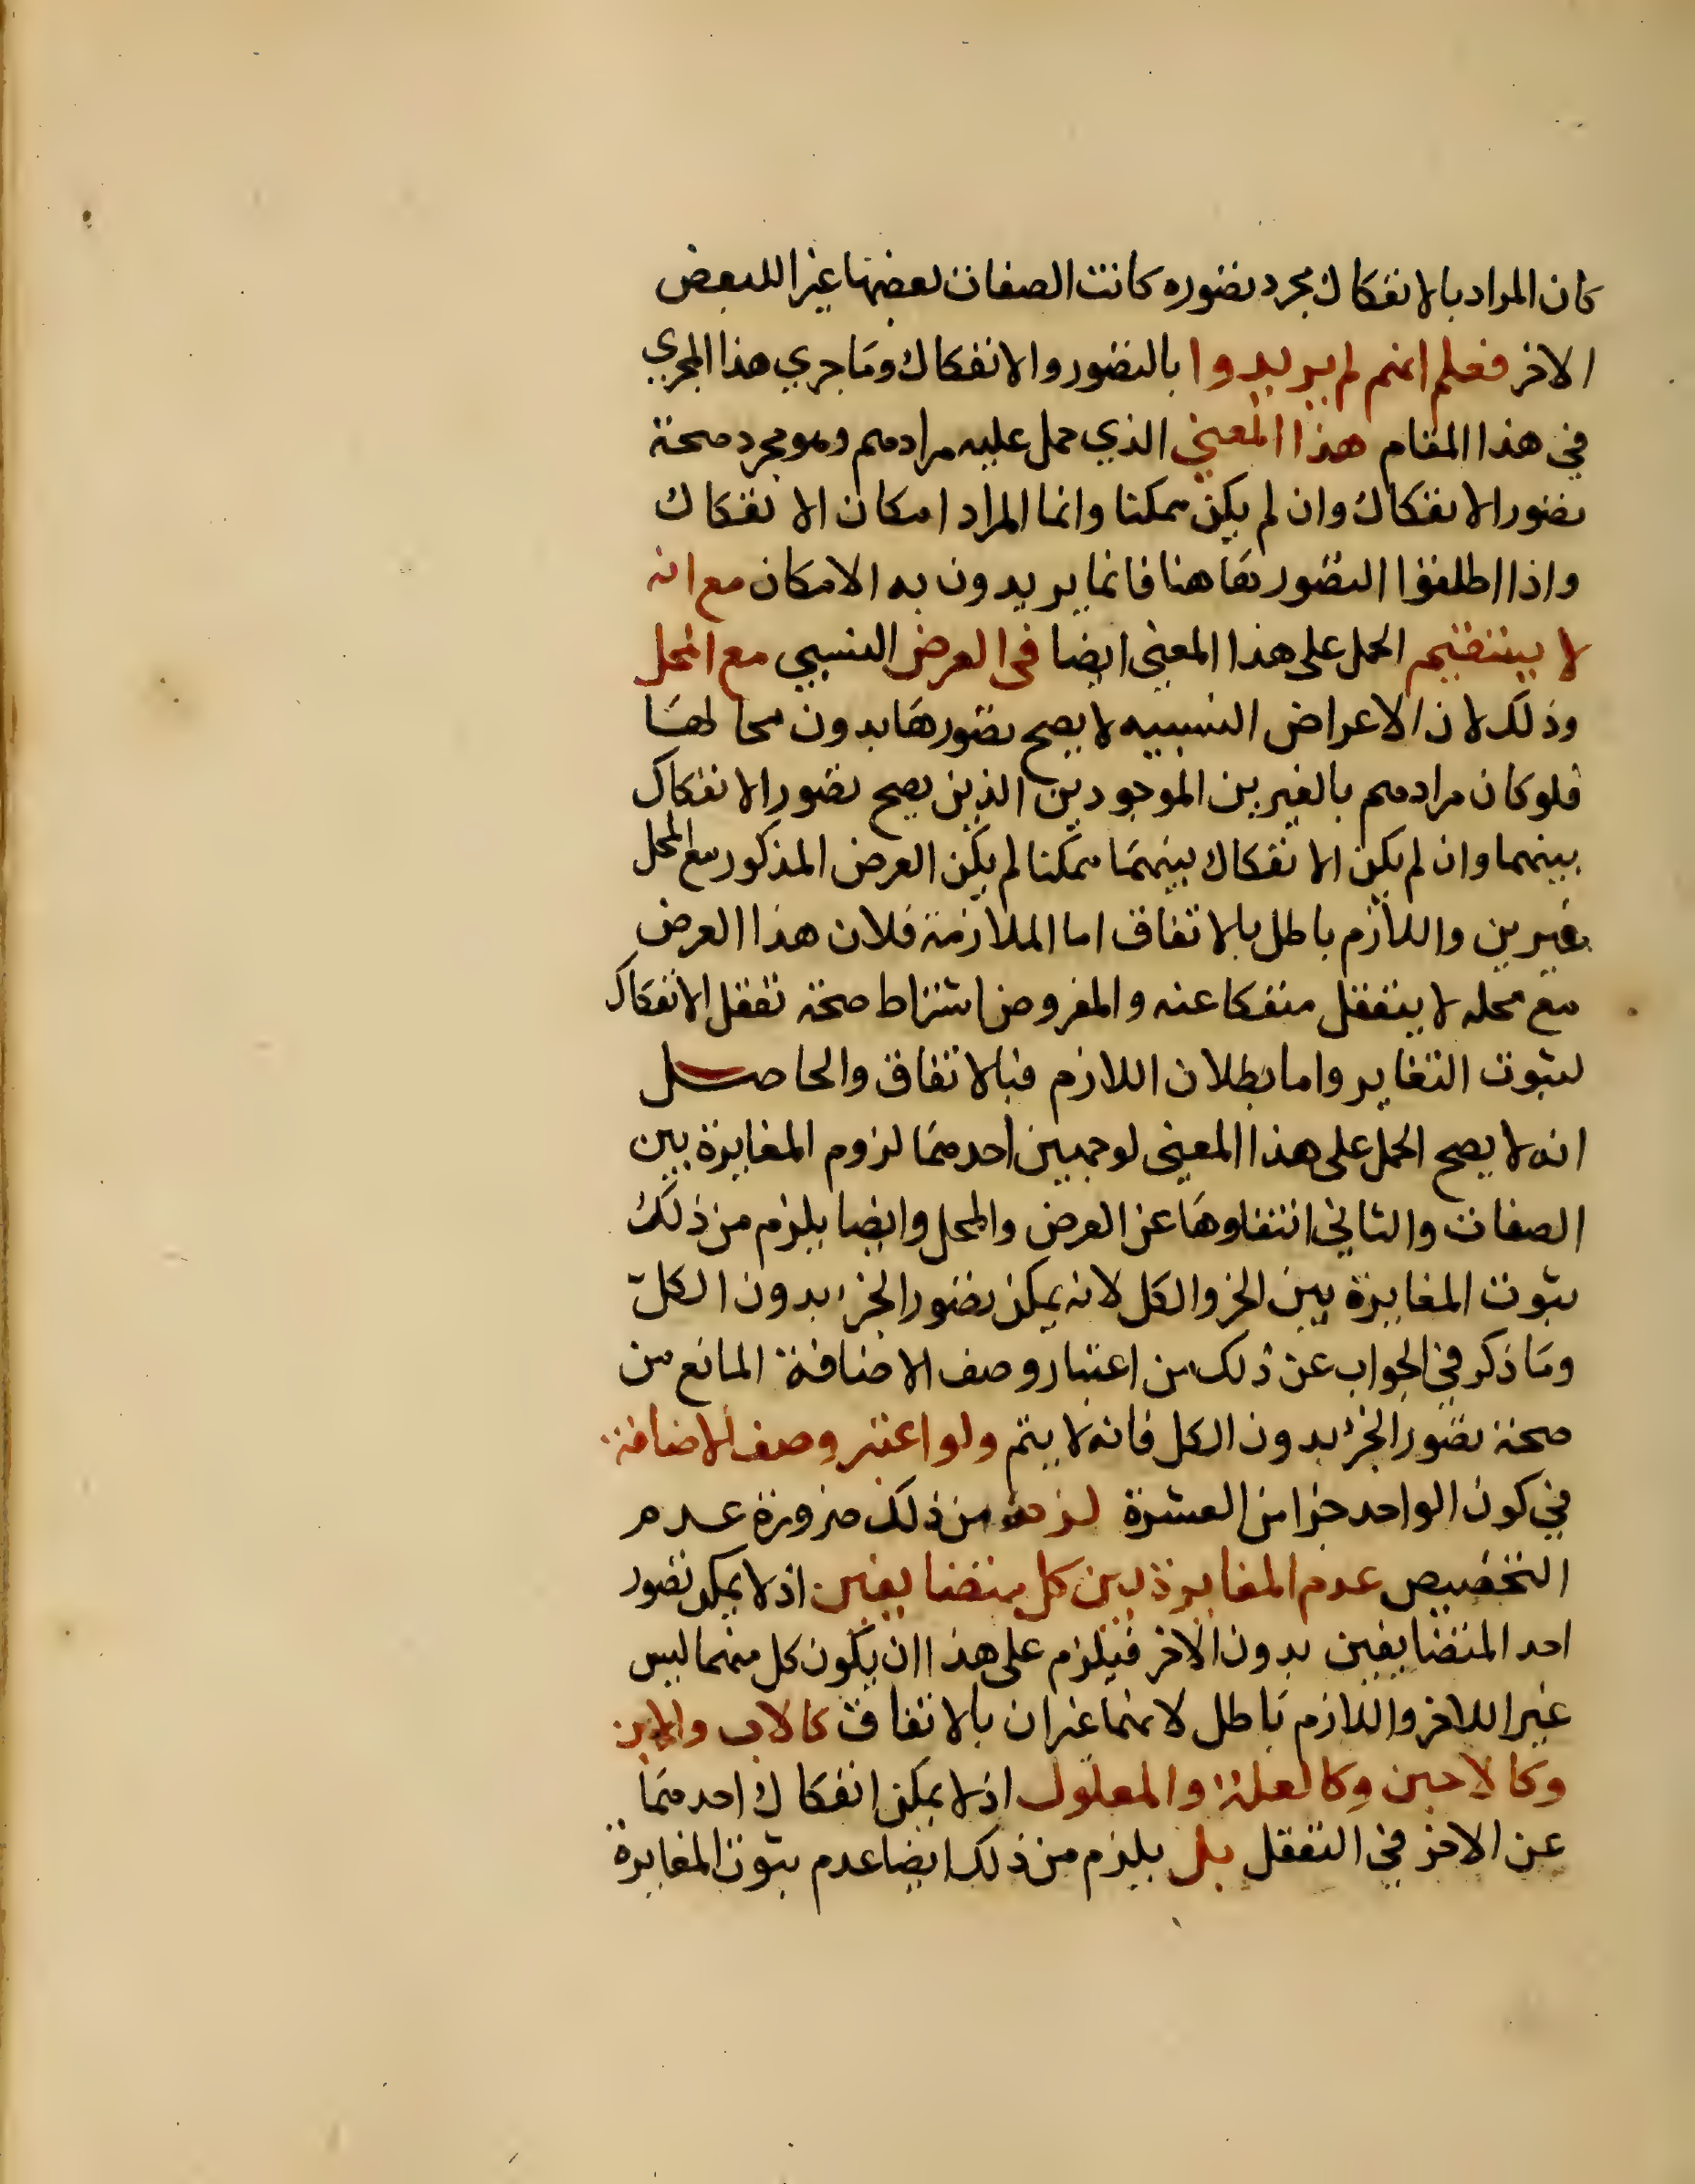 كان المراد بالانفكاك مجرد تصوره كانت الصفات بعضها غير اللبعض
الاخر فعلم انهم لم يريدوا بالتصور والانفكاك وما جري هذا المجري
في هذا المقام هذا المعني الذي حمل عليه مرادهم وهو مجرد صحة
تصور الانفكاك وان لم يكن ممكنا وانما المراد امكان الانفكاك
واذا اطلقوا التصور هاهنا فانما يريدون به الامكان مع انه
لا يستقيم الحمل على هذا المعني ايضا في العرض النسبي مع المحل
وذلك لان الاعراض النسبيه لا يصح تصورها بدون محالها
فلو كان مرادهم بالغيرين الموجودين الذين يصح تصور الانفكاك
بينهما وان لم يكن الانفكاك بينهما ممكنا لم يكن العرض المذكور مع المحل
غيرين واللازم باطل بالاتفاق اما الملازمة فلان هذا العرض
مع محله لا يتعقل منفكا عنه والمفروض اشتراط صحة تعقل الانفكاك
لثبوت التغاير واما بطلان اللازم فبالاتفاق والحاصل
انه لا يصح الحمل على هذا المعني لوجهين احدهما لزوم المغايرة بين
الصفات والثاني انتفاوها عن العرض والمحل وايضا يلزم من ذلك
ثبوت المغايرة بين الجز والكل لانه يمكن تصور الجزء بدون الكل
وما ذكر في الجواب عن ذلك من اعتبار وصف الاضافة المانع من
صحة تصور الجزء بدون الكل فانه لا يتم ولو اعتبر وصف الاضافة
في كون الواحد جزا من العشرة لزم من ذلك ضرورة عدم
التخصيص عدم المغايرة بين كل متضايفين اذ لا يمكن تصور
احد المتضايفين بدون الاخر فيلزم على هذا ان يكون كل منهما ليس
غير اللاخر واللازم باطل لانهما غيران بالاتفاق كالاب والابن
وكالاخين وكالعلة والمعلول اذ لا يمكن انفكاك احدهما
عن الاخر في التعقل بل يلزم من ذلك ايضا عدم ثبوت المغايرة